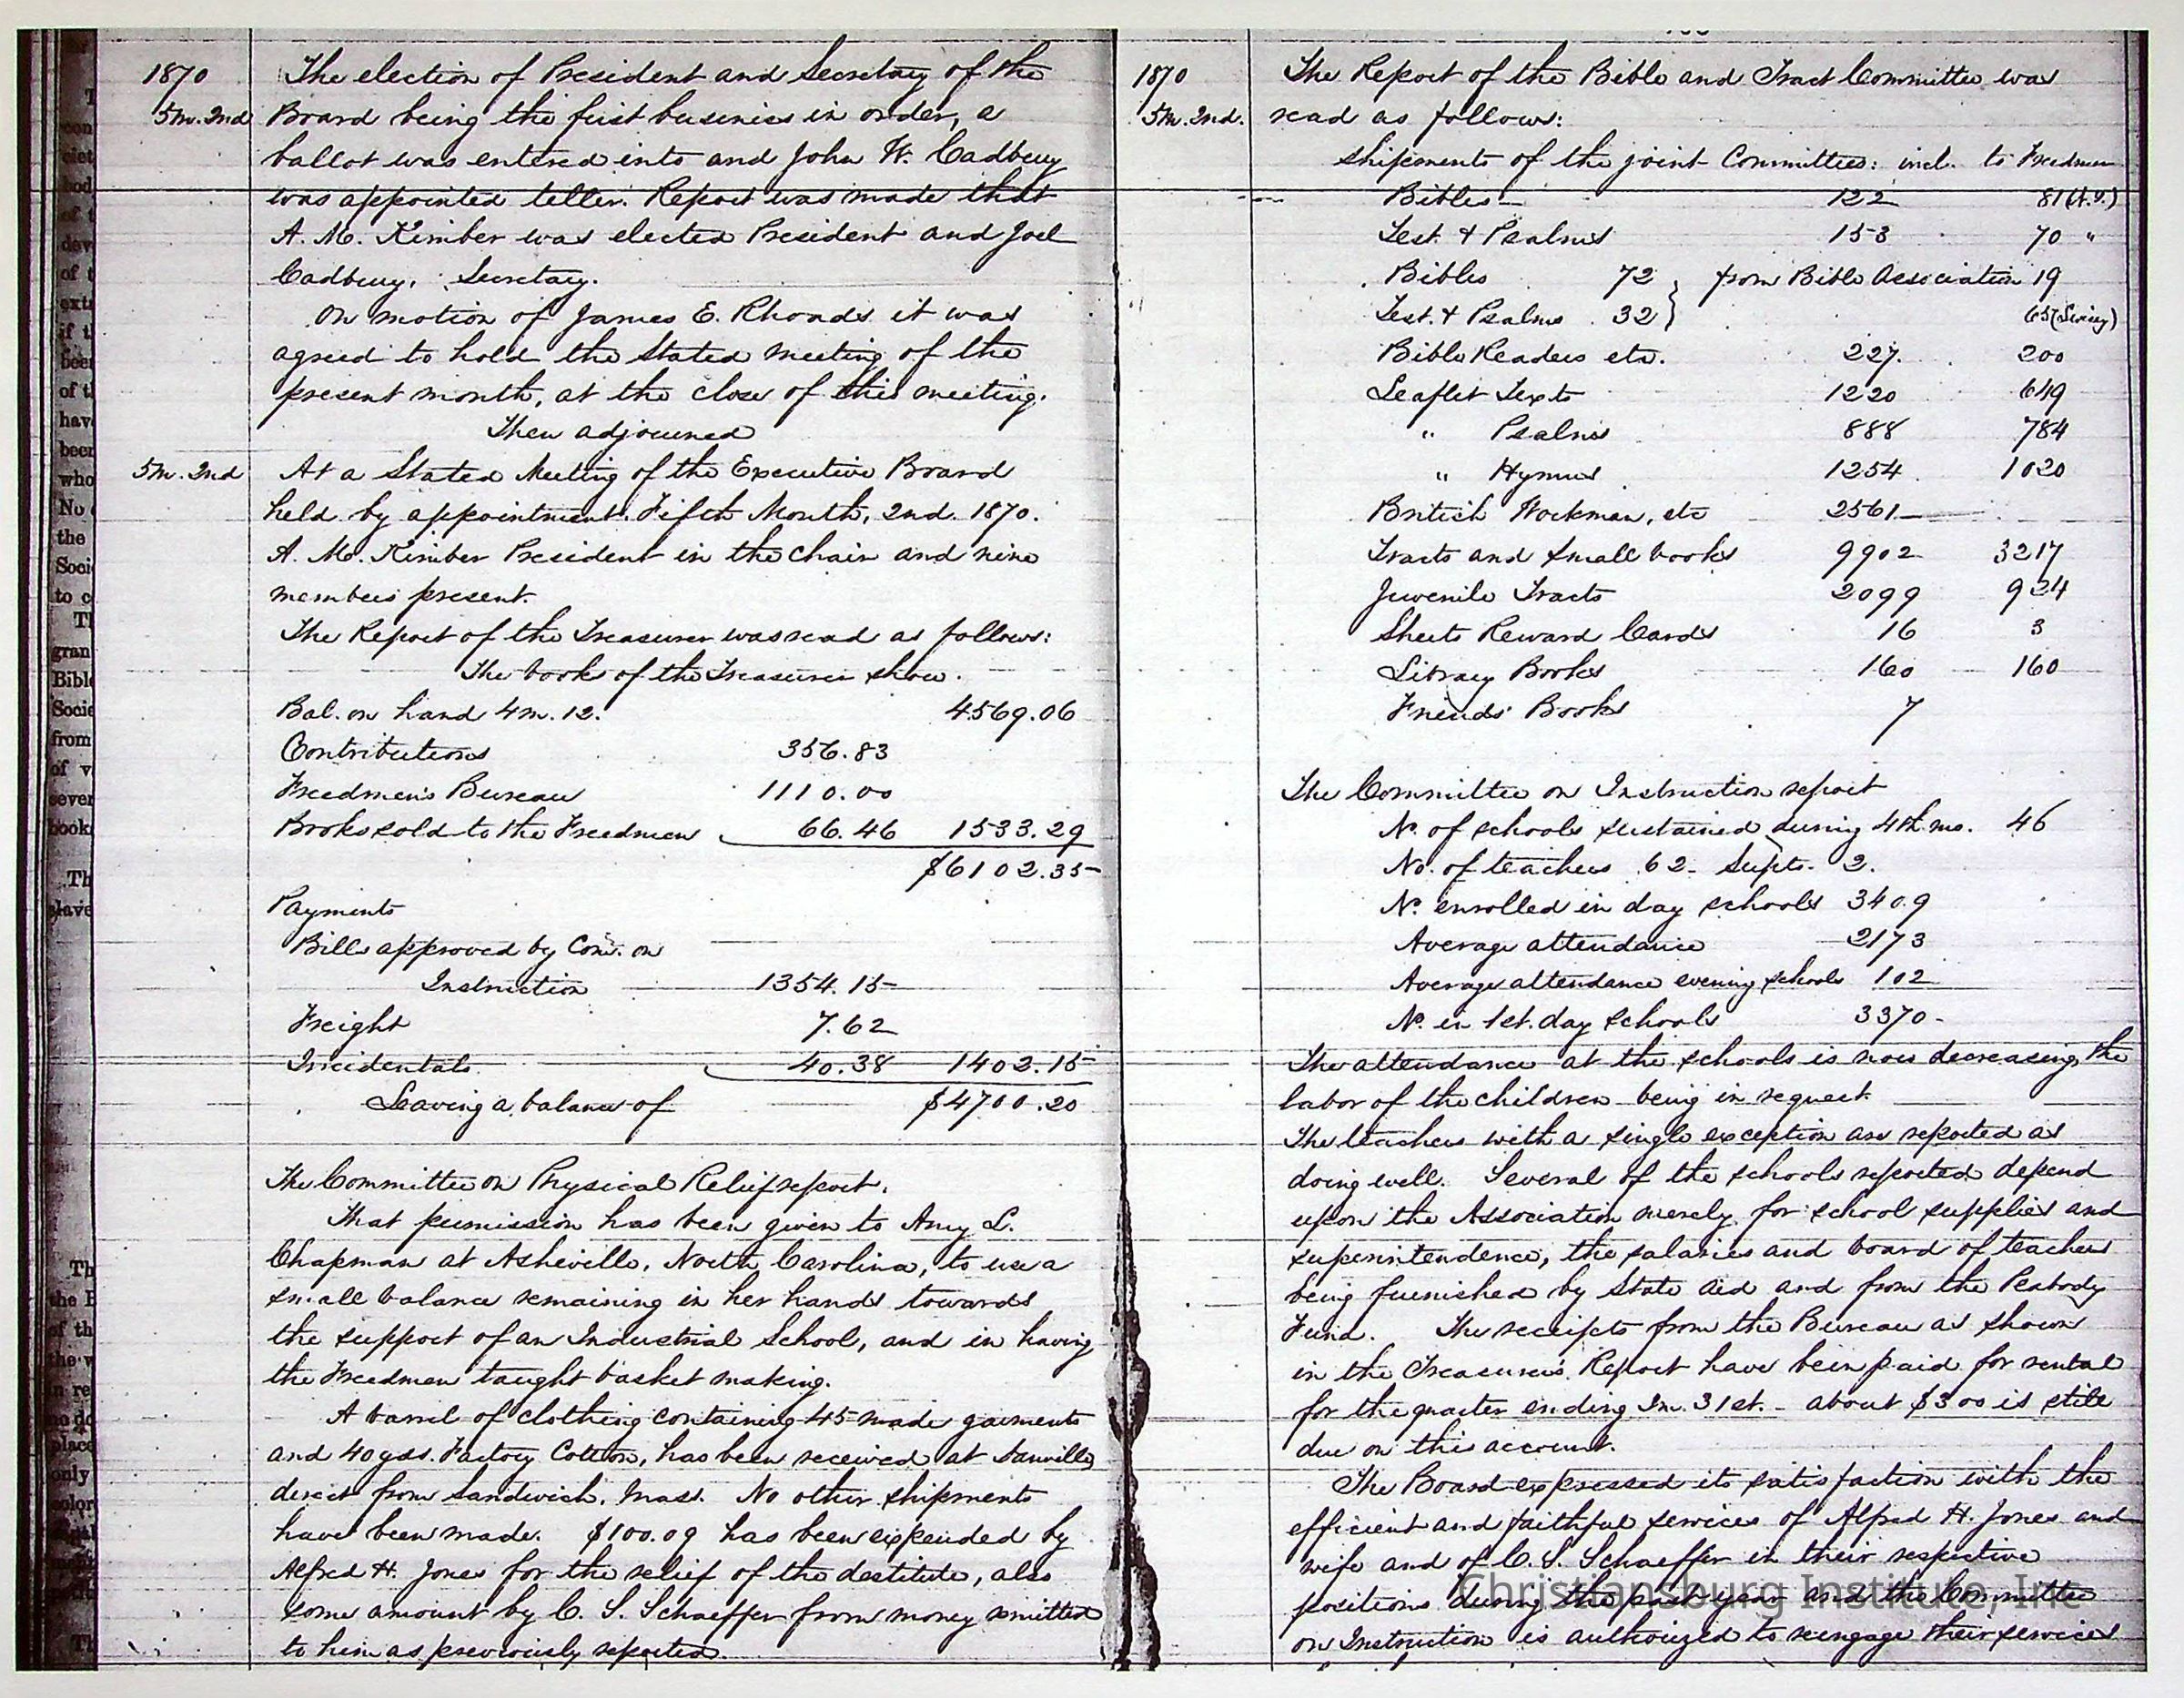 1870
The election of President and Secretary of the
5m. 2nd
Board being the first business in order, a
ballot was entered into and John W. Cadbury
was appointed teller. Report was made that
A. M. Kimber was elected President and Joel
Cadbury, Secretary.
On motion of James E. Rhoads it was
agreed to hold the Stated Meeting of the
present month, at the close of this meeting.
Then adjourned
5m. 2nd
At a Stated Meeting of the Executive Board
held by appointment. Fifth Month, 2nd. 1870.
A. M. Kimber President in the chair and nine
members present.
The Report of the Treasurer was read as follows:
The books of the Treasurer show.
Bal. on hand 4m. 12. 4569.06
Contributions 356.83
Freedmen's Bureau 1110.00
Books sold to the Freedmen 66.46 1533.29
$6102.35
Payments
Bills approved by Com. on
Instruction 1354.15
Freight 7.62
Incidentals 40.38 1402.15
Leaving a balance of $4700.20
The Committee on Physical Relief report.
That permission has been given to Amy L.
Chapman at Asheville, North Carolina, to use a
small balance remaining in her hands towards
the support of an Industrial School, and in having
the Freedmen taught basket making.
A barrel of clothing containing 45 made garments
and 40 yds. Factory Cotton, has been received at Danville
direct from Sandwich, Mass. No other shipments
have been made. $100.09 has been expended by
Alfred H. Jones for the relief of the destitute, also
some amount by C. S. Schaeffer from money remitted
to him as previously reported.
1870
The Report of the Bible and Tract Committee was
5m. 2nd.
read as follows:
Shipments of the joint Committees: incl. to Freedmen
Bibles 122 81
Test. & Psalms 153 70 "
Bibles 72 } from Bible Association 19
Test. & Psalms 32 } 65
Bible Readers etc. 227. 200
Leaflet Texts 1220 649
" Psalms 888 784
" Hymns 1254 1020
British Workman, etc 2561
Tracts and small books 9902 3217
Juvenile Tracts 2099 924
Sheets Reward Cards 16 3
Library Books 160 160
Friends' Books 7
The Committee on Instruction report
No. of schools sustained during 4th. mo. 46
No. of teachers 62 - Supts. 2.
No. enrolled in day schools 3409
Average attendance 2173
Average attendance evening schools 102
No. in 1st. day schools 3370 -
The attendance at the schools is now decreasing, the
labor of the children being in request.
The teachers with a single exception are reported as
doing well. Several of the schools reported depend
upon the Association merely for school supplies and
superintendence, the salaries and board of teachers
being furnished by State aid and from the Peabody
Fund. The receipts from the Bureau as shown
in the Treasurer's Report have been paid for rental
for the quarter ending 3m. 31st. - about $300 is still
due on this account.
The Board expressed its satisfaction with the
efficient and faithful services of Alfred H. Jones and
wife and of C. S. Schaeffer in their respective
positions during the past year and the Committee
on Instruction is authorized to reengage their services
Christiansburg Institute, Inc